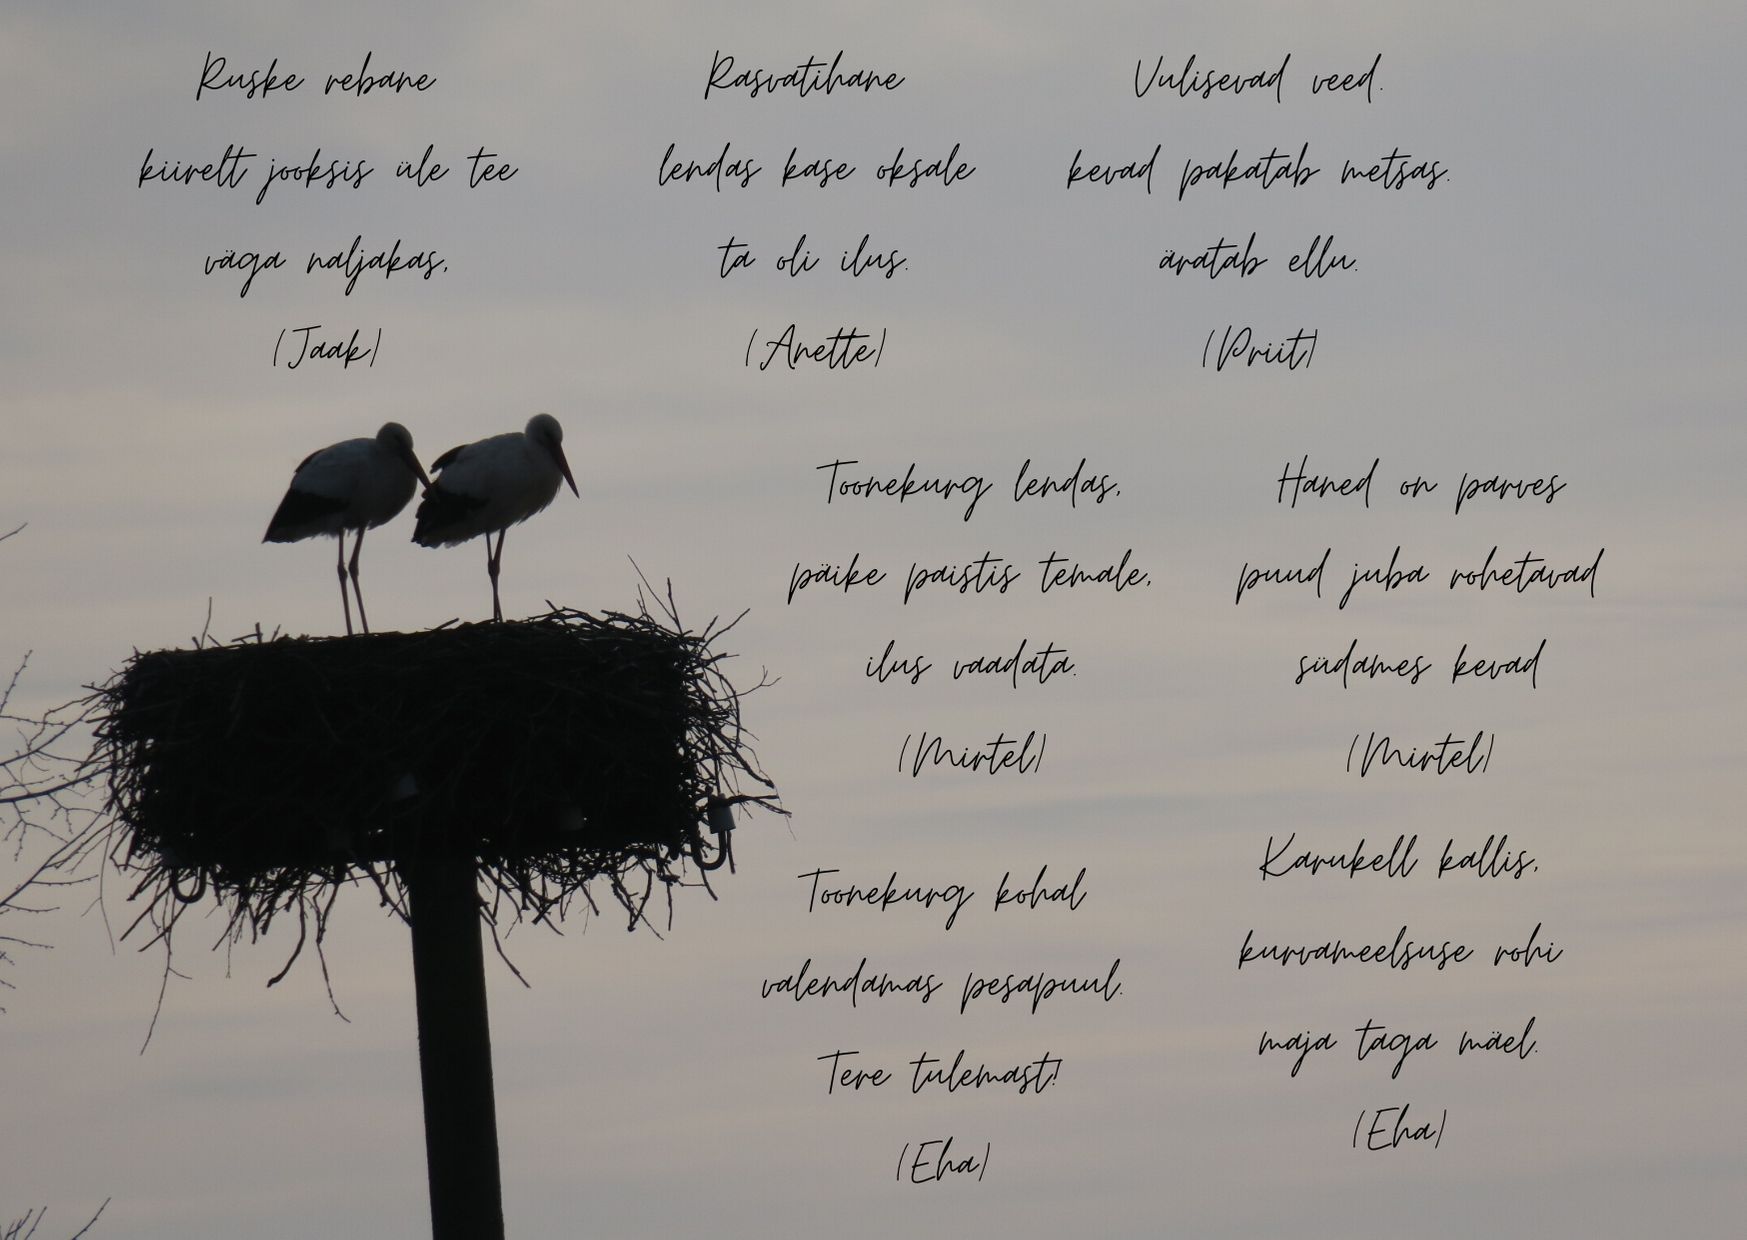 Ruske rebane
kiirelt jooksis üle tee
väga naljakas,
(Jaak)
Rasvatihane
lendas kase oksale
ta oli ilus.
(Anette)
Vulisevad veed.
kevad pakatab metsas.
äratab ellu.
(Priit)
Toonekurg lendas,
päike paistis temale,
ilus vaadata.
(Mirtel)
Haned on parves
puud juba rohetavad
südames kevad
(Mirtel)
Toonekurg kohal
valendamas pesapuul.
Tere tulemast!
(Eha)
Karukell kallis,
kurvameelsuse rohi
maja taga mäel.
(Eha)